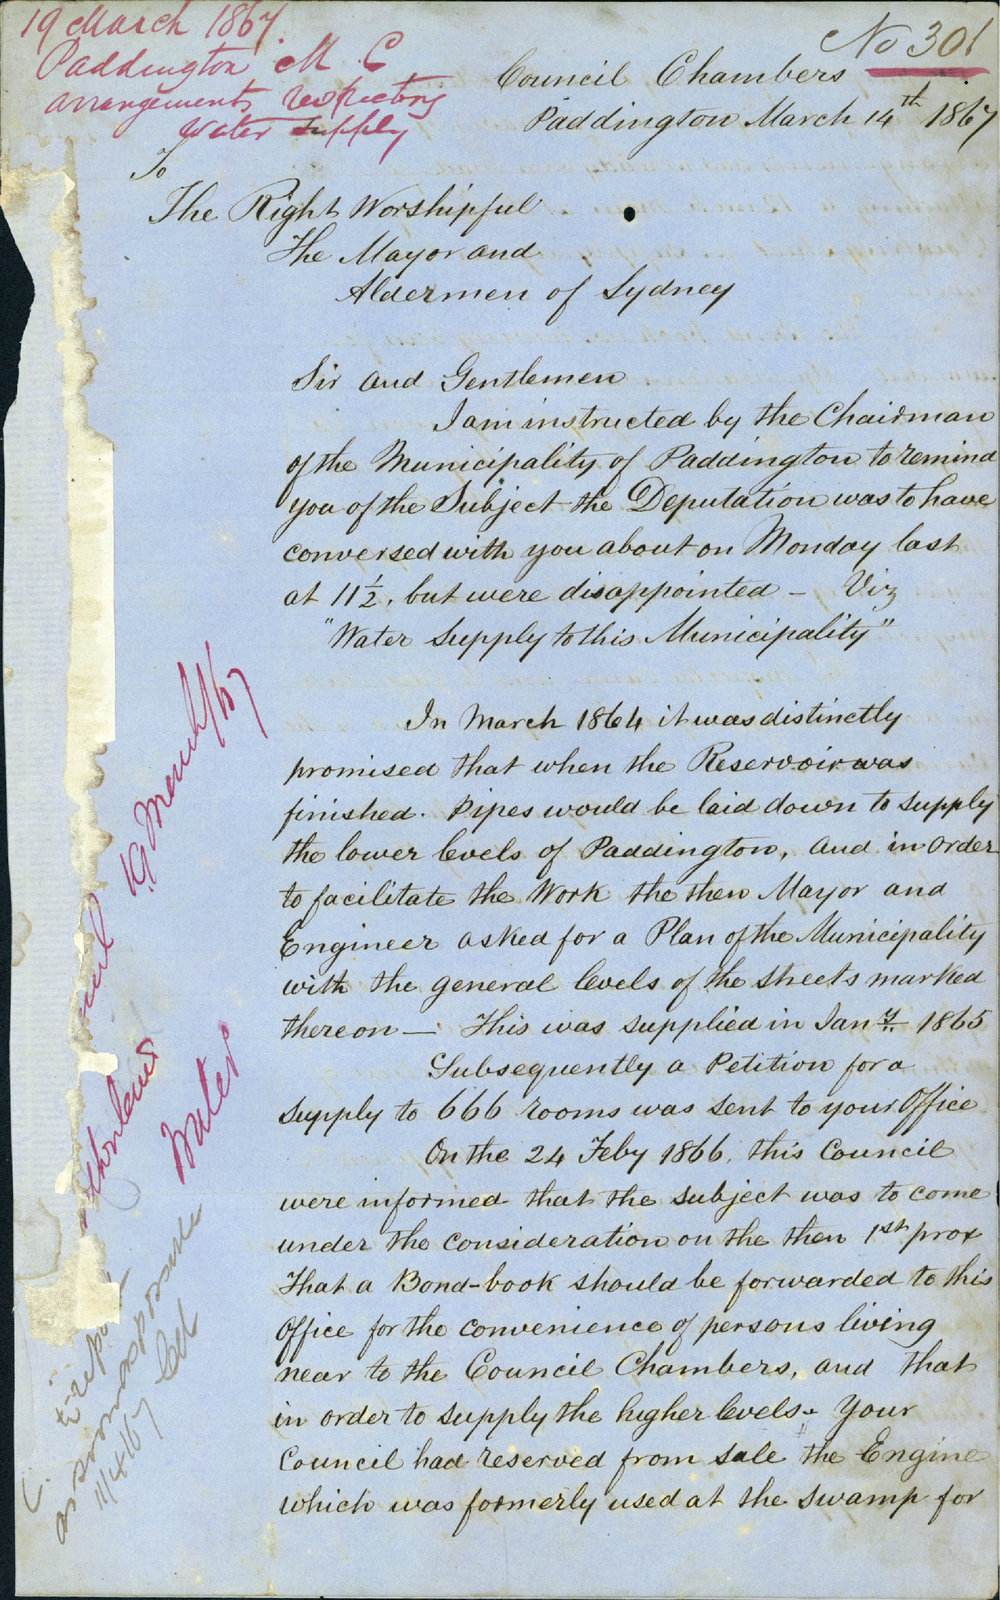 19 March 1867.
Paddington M. C
arrangements respecting
water supply
No 301
Council Chambers
Paddington March 14th 1867
To
The Right Worshipful
The Mayor and
Aldermen of Sydney
Sir and Gentlemen
I am instructed by the Chairman
of the Municipality of Paddington to remind
you of the Subject the Deputation was to have
conversed with you about on Monday last
at 11½, but were disappointed – Viz
"Water Supply to this Municipality"
In March 1864 it was distinctly
promised that when the Reservoir was
finished. Pipes would be laid down to supply
the lower levels of Paddington, and in order
to facilitate the Work the then Mayor and
Engineer asked for a Plan of the Municipality
with the general levels of the streets marked
thereon — This was supplied in Jany. 1865
Subsequently a Petition for a
supply to 666 rooms was sent to your Office
On the 24 Feby 1866, this Council
were informed that the subject was to come
under the consideration on the then 1st prox
That a Bond-book should be forwarded to this
Office for the convenience of persons living
near to the Council Chambers, and that
in order to supply the higher levels – Your
Council had reserved from sale the Engine
which was formerly used at the swamp for
19 March/67
Water
as soon as possible
11/4/67